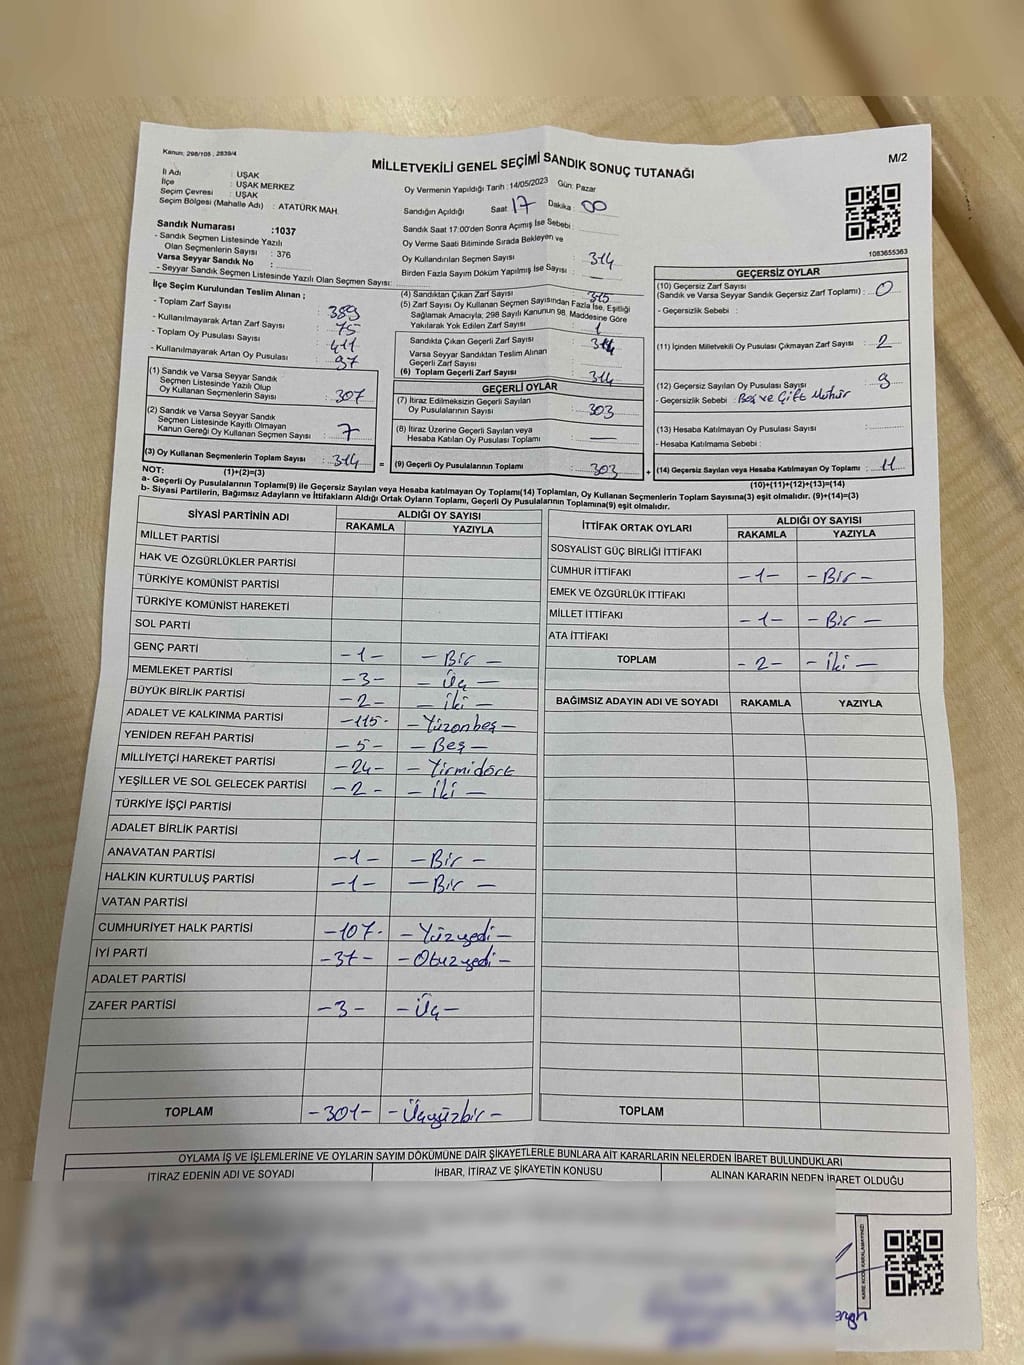 Kanun: 298/105 , 2839/4
MİLLETVEKİLİ GENEL SEÇİMİ SANDIK SONUÇ TUTANAĞI
M/2
İl Adı : UŞAK
İlçe : UŞAK MERKEZ
Seçim Çevresi : UŞAK
Seçim Bölgesi (Mahalle Adı) : ATATÜRK MAH.
Oy Vermenin Yapıldığı Tarih : 14/05/2023 Gün: Pazar
Sandığın Açıldığı Saat 17 Dakika : 00
Sandık Saat 17:00'den Sonra Açımış İse Sebebi :
Oy Verme Saati Bitiminde Sırada Bekleyen ve
Oy Kullandırılan Seçmen Sayısı : 314
Birden Fazla Sayım Döküm Yapılmış İse Sayısı : —
1083655363
Sandık Numarası :1037
- Sandık Seçmen Listesinde Yazılı
Olan Seçmenlerin Sayısı : 376
Varsa Seyyar Sandık No :
- Seyyar Sandık Seçmen Listesinde Yazılı Olan Seçmen Sayısı:
İlçe Seçim Kurulundan Teslim Alınan ;
- Toplam Zarf Sayısı : 389
- Kullanılmayarak Artan Zarf Sayısı : 75
- Toplam Oy Pusulası Sayısı : 411
- Kullanılmayarak Artan Oy Pusulası : 97
(1) Sandık ve Varsa Seyyar Sandık
Seçmen Listesinde Yazılı Olup
Oy Kullanan Seçmenlerin Sayısı : 307
(2) Sandık ve Varsa Seyyar Sandık
Seçmen Listesinde Kayıtlı Olmayan
Kanun Gereği Oy Kullanan Seçmen Sayısı : 7
(3) Oy Kullanan Seçmenlerin Toplam Sayısı : 314
(1)+(2)=(3)
(4) Sandıktan Çıkan Zarf Sayısı : 315
(5) Zarf Sayısı Oy Kullanan Seçmen Sayısından Fazla İse, Eşitliği
Sağlamak Amacıyla; 298 Sayılı Kanunun 98. Maddesine Göre
Yakılarak Yok Edilen Zarf Sayısı : 1
Sandıkta Çıkan Geçerli Zarf Sayısı : 314
Varsa Seyyar Sandıktan Teslim Alınan
Geçerli Zarf Sayısı :
(6) Toplam Geçerli Zarf Sayısı : 314
GEÇERLİ OYLAR
(7) İtiraz Edilmeksizin Geçerli Sayılan
Oy Pusulalarının Sayısı : 303
(8) İtiraz Üzerine Geçerli Sayılan veya
Hesaba Katılan Oy Pusulası Toplamı : —
= (9) Geçerli Oy Pusulalarının Toplamı : 303 +
GEÇERSİZ OYLAR
(10) Geçersiz Zarf Sayısı
(Sandık ve Varsa Seyyar Sandık Geçersiz Zarf Toplamı) : 0
- Geçersizlik Sebebi :
(11) İçinden Milletvekili Oy Pusulası Çıkmayan Zarf Sayısı : 2
(12) Geçersiz Sayılan Oy Pusulası Sayısı : 9
- Geçersizlik Sebebi : Boş ve Çift Mühür
(13) Hesaba Katılmayan Oy Pusulası Sayısı :
- Hesaba Katılmama Sebebi :
(14) Geçersiz Sayılan veya Hesaba Katılmayan Oy Toplamı : 11
(10)+(11)+(12)+(13)=(14)
NOT:
a- Geçerli Oy Pusulalarının Toplamı(9) ile Geçersiz Sayılan veya Hesaba Katılmayan Oy Toplamı(14) Toplamları, Oy Kullanan Seçmenlerin Toplam Sayısına(3) eşit olmalıdır. (9)+(14)=(3)
b- Siyasi Partilerin, Bağımsız Adayların ve İttifakların Aldığı Ortak Oyların Toplamı, Geçerli Oy Pusulalarının Toplamına(9) eşit olmalıdır.
SİYASİ PARTİNİN ADI ALDIĞI OY SAYISI
RAKAMLA YAZIYLA
MİLLET PARTİSİ
HAK VE ÖZGÜRLÜKLER PARTİSİ
TÜRKİYE KOMÜNİST PARTİSİ
TÜRKİYE KOMÜNİST HAREKETİ
SOL PARTİ
GENÇ PARTİ -1- - Bir -
MEMLEKET PARTİSİ -3- - Üç -
BÜYÜK BİRLİK PARTİSİ -2- - İki -
ADALET VE KALKINMA PARTİSİ -115- - Yüzonbeş -
YENİDEN REFAH PARTİSİ -5- - Beş -
MİLLİYETÇİ HAREKET PARTİSİ -24- - Yirmidört
YEŞİLLER VE SOL GELECEK PARTİSİ -2- - İki -
TÜRKİYE İŞÇİ PARTİSİ
ADALET BİRLİK PARTİSİ
ANAVATAN PARTİSİ -1- - Bir -
HALKIN KURTULUŞ PARTİSİ -1- - Bir -
VATAN PARTİSİ
CUMHURİYET HALK PARTİSİ -107- - Yüzyedi -
İYİ PARTİ -37- - Otuzyedi -
ADALET PARTİSİ
ZAFER PARTİSİ -3- - Üç -
TOPLAM -301- - Üçyüzbir -
İTTİFAK ORTAK OYLARI ALDIĞI OY SAYISI
RAKAMLA YAZIYLA
SOSYALİST GÜÇ BİRLİĞİ İTTİFAKI
CUMHUR İTTİFAKI -1- - Bir -
EMEK VE ÖZGÜRLÜK İTTİFAKI
MİLLET İTTİFAKI -1- - Bir -
ATA İTTİFAKI
TOPLAM -2- - İki -
BAĞIMSIZ ADAYIN ADI VE SOYADI RAKAMLA YAZIYLA
TOPLAM
OYLAMA İŞ VE İŞLEMLERİNE VE OYLARIN SAYIM DÖKÜMÜNE DAİR ŞİKAYETLERLE BUNLARA AİT KARARLARIN NELERDEN İBARET BULUNDUKLARI
İTİRAZ EDENİN ADI VE SOYADI İHBAR, İTİRAZ VE ŞİKAYETİN KONUSU ALINAN KARARIN NEDEN İBARET OLDUĞU
KARE KODU KARALAMAYINIZ!